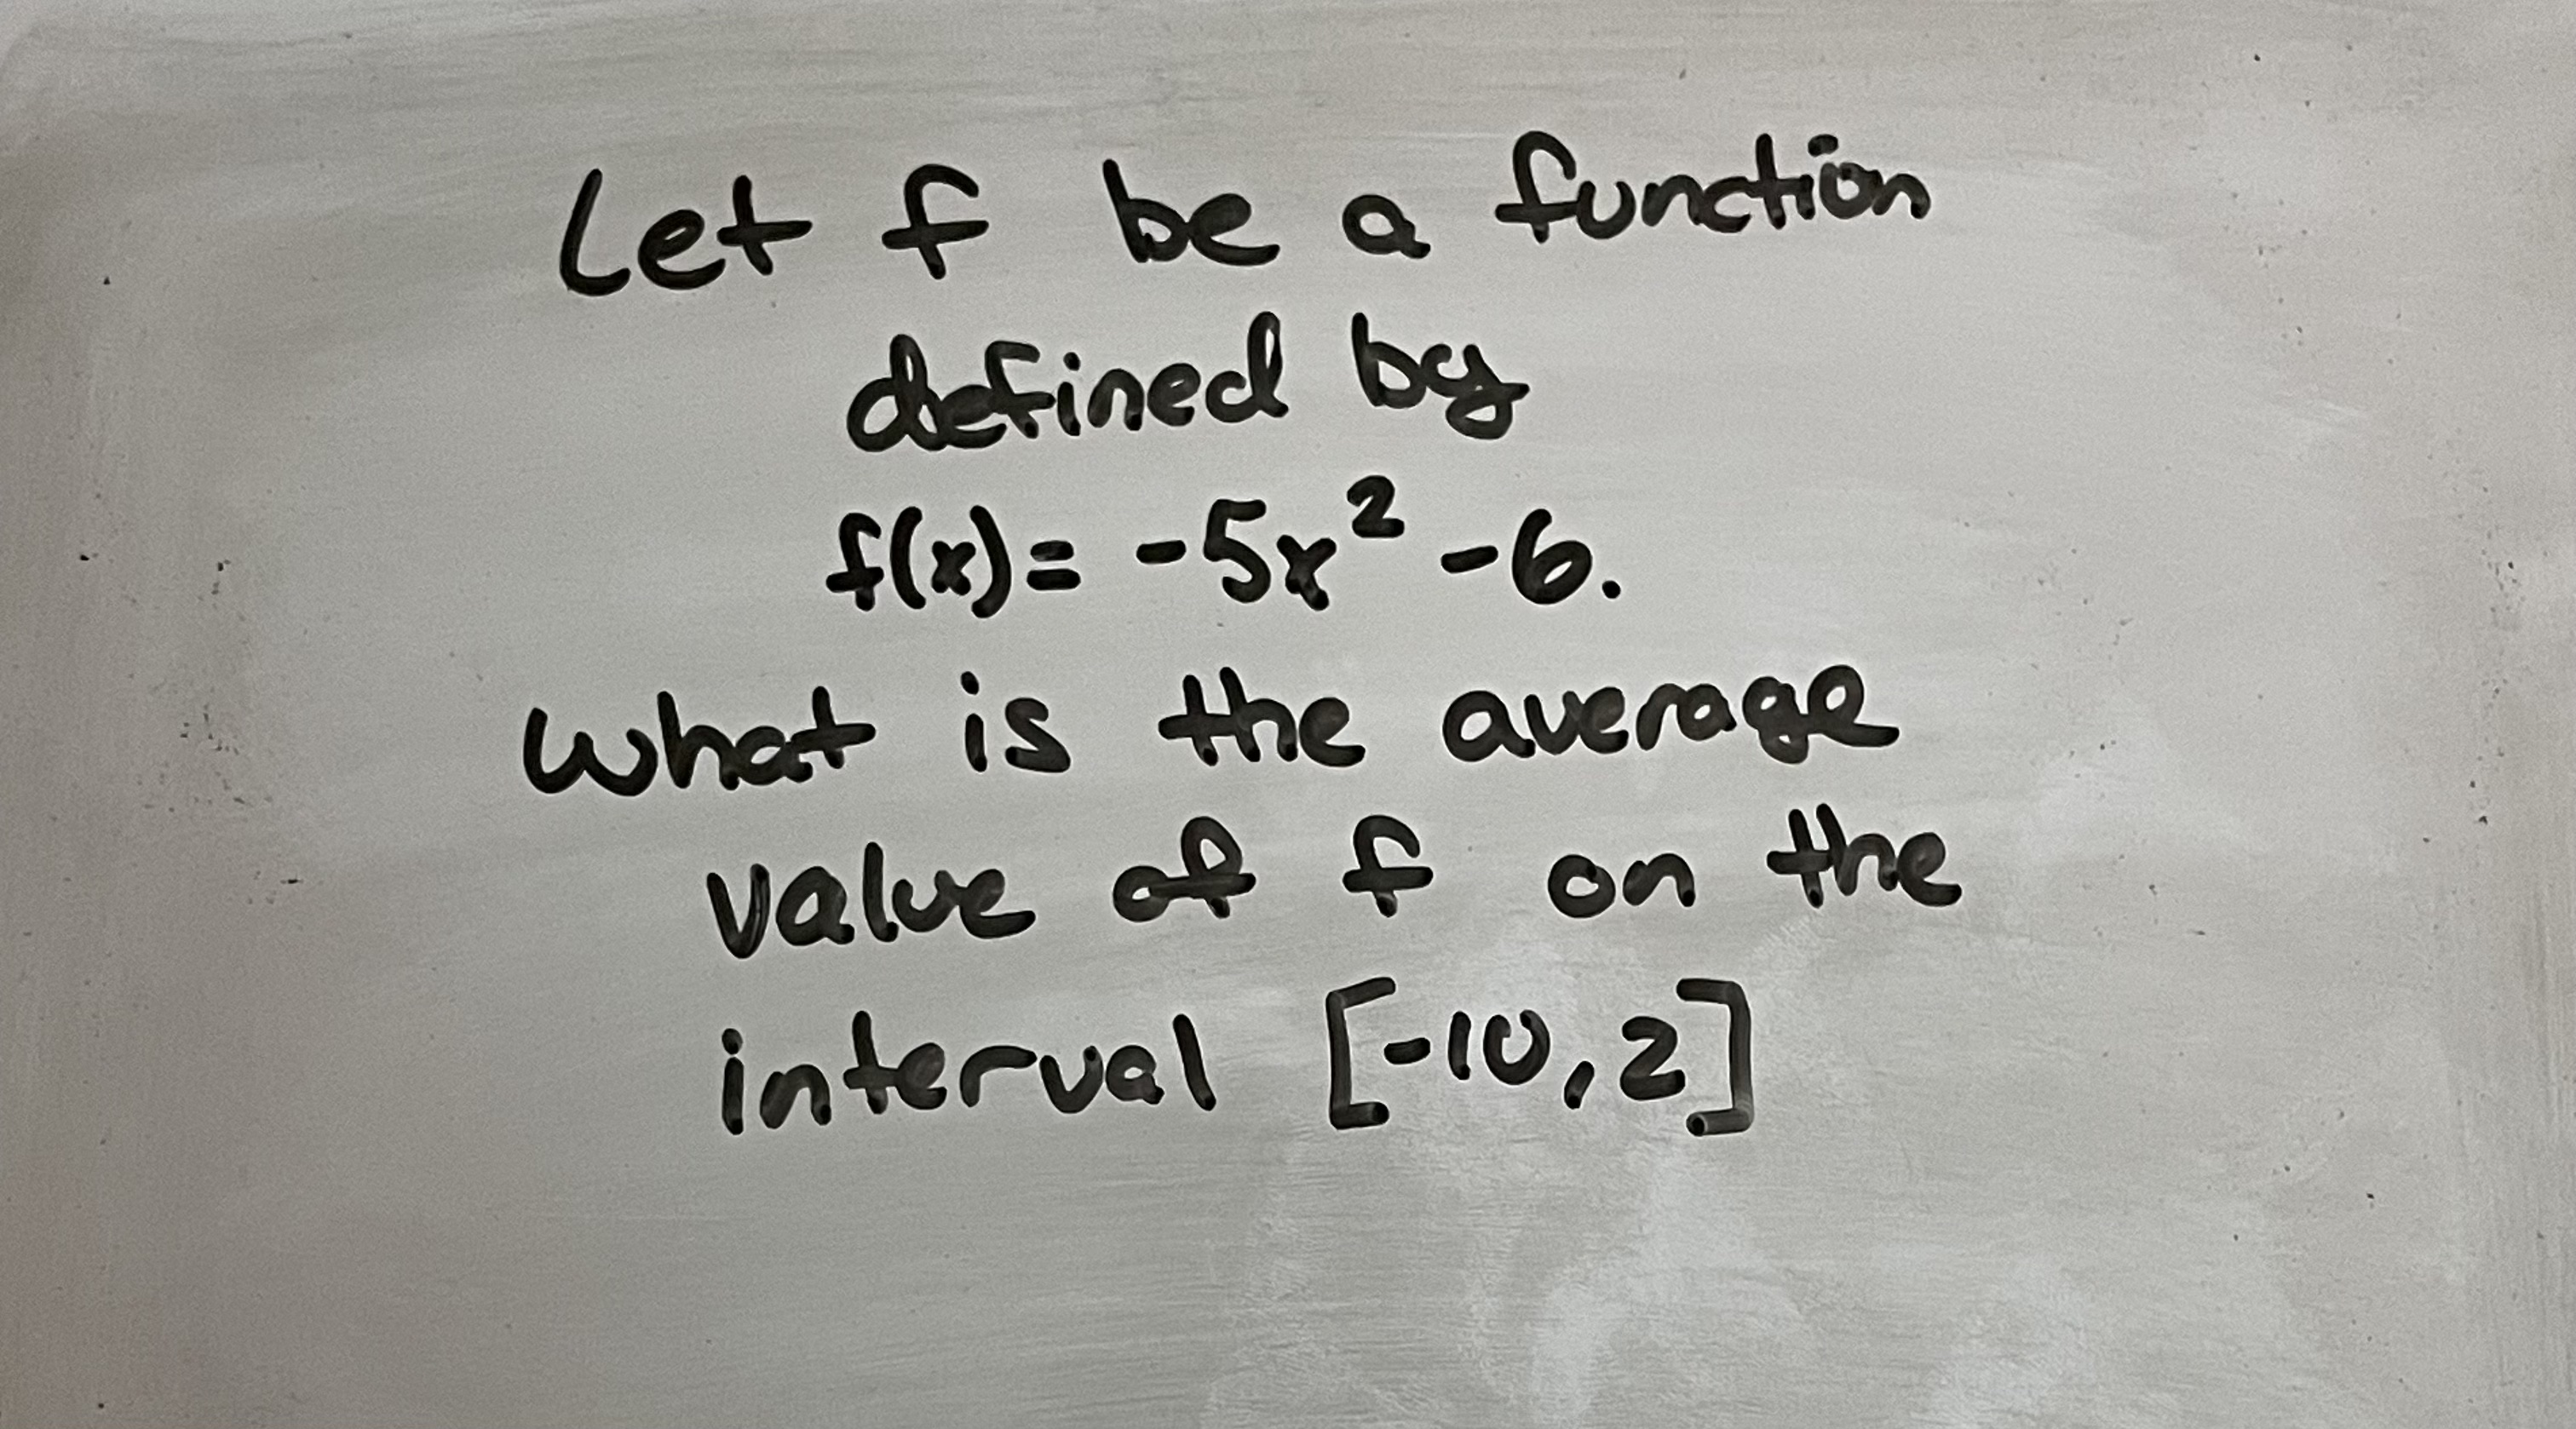 Let f be a function
defined by
f(x)= -5x² -6.
What is the average
value of f on the
interval [-10,2]